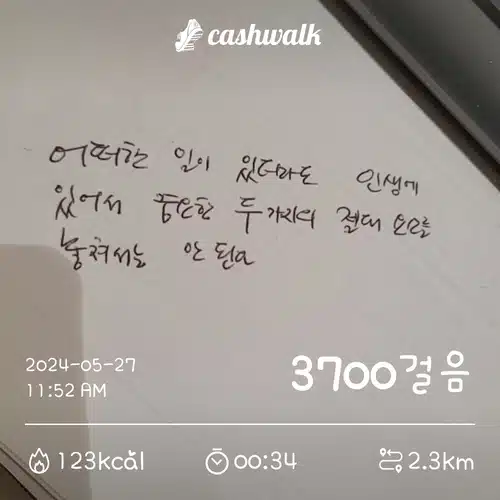 cashwalk
어떠한 일이 있더라도 인생에
있어서 중요한 두가지의 절대 요소를
놓쳐서는 안 된다
2024-05-27
11:52 AM
3700걸음
123kcal
00:34
2.3km